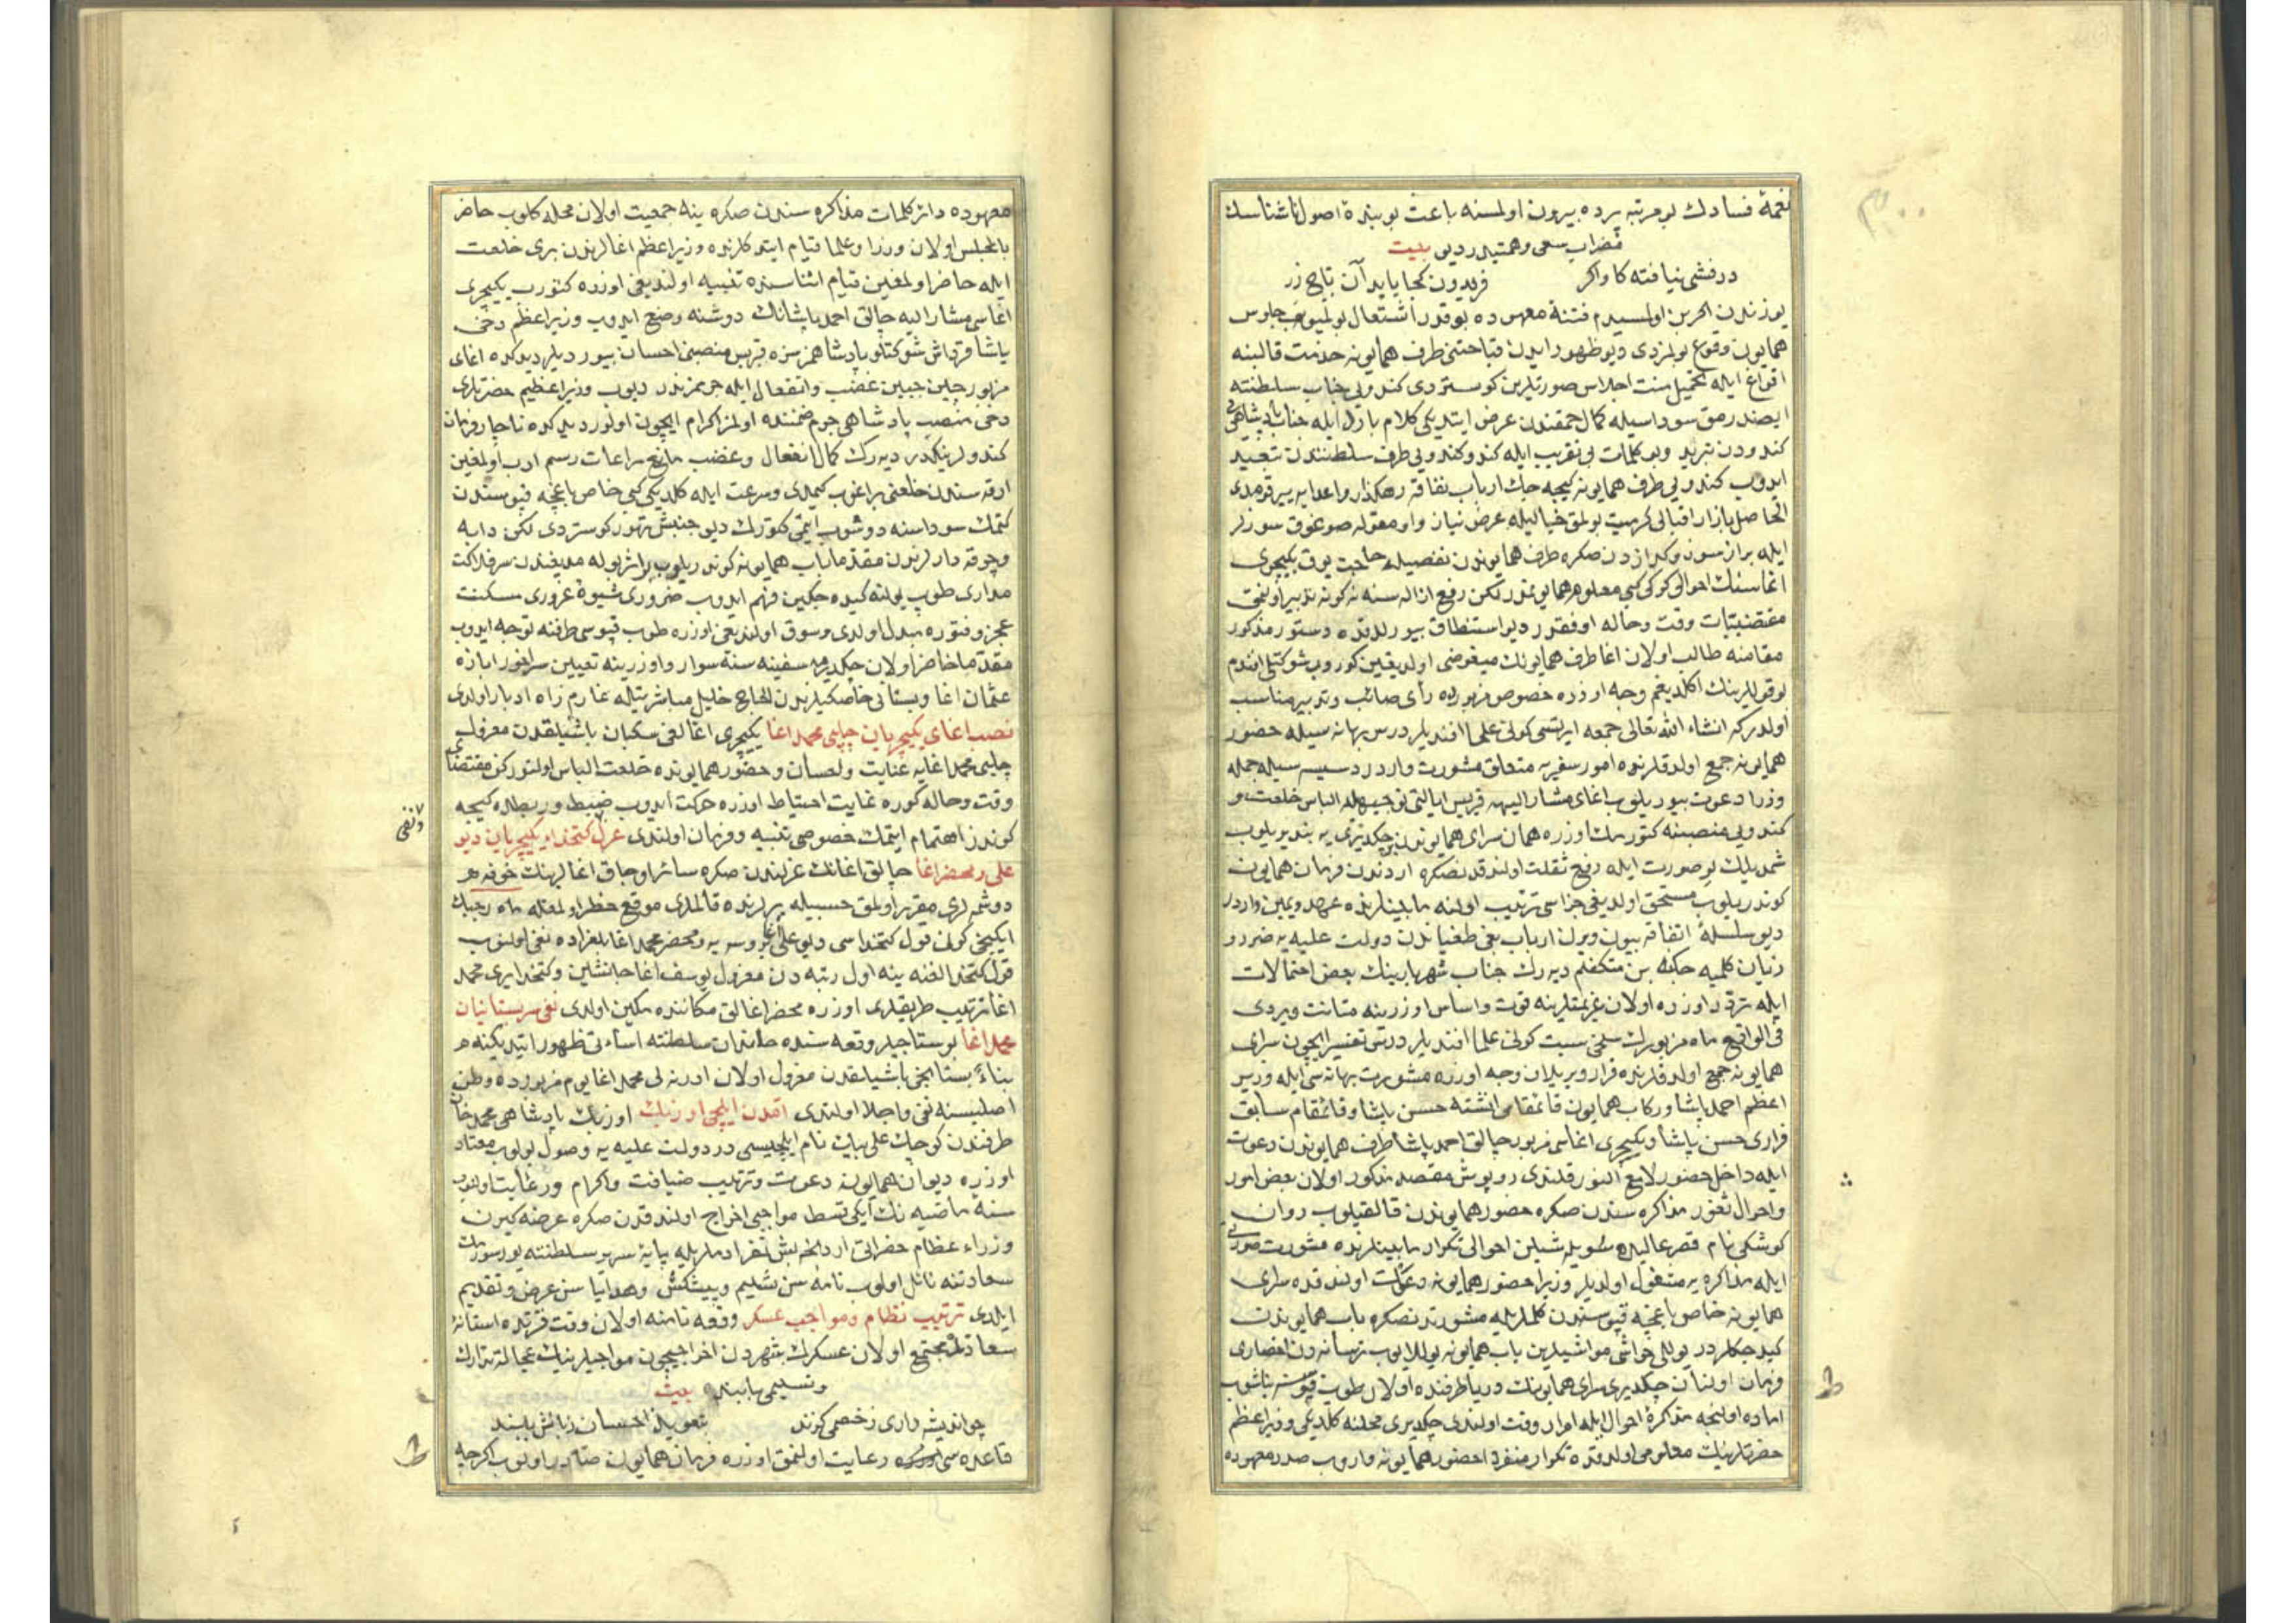 نغمهٔ فسادك بو مرتبه پرده بیرون اولمسنه باعث بو بندهٔ اصول ناشناسك
مضراب سعی و همتیدر دیو بیت
درفشی نیافته کاواکر فریدون کجا یابد آن تاج زر
یوزندن اولمسیدم فتنهٔ معهوده بو قدر اشتعال بولمیوب جلوس
همایون وقوع بولمزدی دیو ظهور ایدن قباحتنی طرف همایونه خدمت قالبنه
افراغ ایله تحمیل منت اجلاس صورتلرین کوستردی کندویی جناب سلطنته
ایصندرمق سوداسیله کمال حمقندن عرض ایتدیکی کلام بارد ایله جناب پادشاهی
کندودن تبرید و بو کلمات بی تقریب ایله کندو کندویی طرف سلطنتدن تبعید
ایدوب کندویی طرف همایونه کیجه جك ارباب نفاقه رهکذار واعدایه سپر قومدی
الحاصل بازار اقبالی کرمیت بولمق خیالیله عرض نیاز واو مقوله صوغوق سوزلر
ایله براز سوز وکدازدن صکره طرف همایوندن تفصیله حاجت یوق یکیچری
اغاسنك احوالی کرکی کبی معلوم همایونمدر لکن رفع ازاله سنه نه کونه تدبیر اولنمق
مقتضیات وقت وحاله اوفقدر دیو استنطاق بیورلدقده دستور مذکور
مقامنه طالب اولان اغا طرف همایونك مبغوضی اولدیغین کوروب شوکتلو افندم
بو قوللرینك اکلدیغم وجه اوزره خصوص مزبورده رأی صائب وتدبیر مناسب
اولدرکه انشاء الله تعالی جمعه ایرتسی کونی علما افندیلر درس بهانه سیله حضور
همایونه جمع اولدقلرنده امور سفریه متعلق مشورت واردر دسیسه سیله جمله
وزرا دعوت بیوریلوب اغای مشارالیهه قبریس ایالتی توجیهله الباس خلعت و
کندویی منصبنه کتورمك اوزره همان سرای همایوندن چکدیری یه بندیریلوب
شمدیلك بو صورت ایله رفع ثقلت اولندقدنصکره اردندن فرمان همایون
کوندریلوب مستحق اولدیغی جزاسی ترتیب اولنه مابینلرنده عهد ویمین واردر
دیو سلسلهٔ اتفاقه بیون ویرن ارباب بغی طغیاندن دولت علیه یه ضرر و
زیان کلمیه جکنه بن متکفلم دیه رك جناب شهریارینك بعض احتمالات
ایله تردد اوزره اولان عزیمتلرینه قوت واساس اوزرینه متانت ویردی
فی الواقع ماه مزبورك سلخی سبت کونی علما افندیلر درس تفسیر ایچون سرای
همایونه جمع اولدقلرنده قرار ویریلان وجه اوزره مشورت بهانه سی ایله وزیر
اعظم احمد پاشا ورکاب همایون قائمقامی انشته حسن پاشا وقائمقام سابق
قراری حسن پاشا ویکیچری اغاسی مزبور چالق احمد پاشا طرف همایوندن دعوت
ایله داخل حضور لامع النور قلندی روپوش مقصد مذکور اولان بعض امور
واحوال ثغور مذاکره سندن صکره حضور همایوندن قالقیلوب روان
کوشکی نام قصر عالیده احوالی تکرار مابینلرنده مشورت صورتی
ایله مذاکره یه مشغول اولدیلر وزیرا حضور همایونه دعوت اولندقده سرای
همایونه خاص باغچه قپوسندن کلملریله مشورتدنصکره باب همایوندن
کیدجکلردر یوللی باب همایونه یوللایوب ترسانه دن احضاری
فرمان اولنان چکدیری سرای همایونك دریا طرفنده اولان طوپ قپوسنه یناشوب
اماده اولنجه مذاکرهٔ احوال ایله امرار وقت اولندی چکدیری محلنه کلدیکی وزیر اعظم
حضرتلرینك معلومی اولدقده تکرار منفردا حضور همایونه واروب صدر معهوده
معهوده دائر کلمات مذاکره سندن صکره ینه جمعیت اولان محله کلوب حاضر
بالمجلس اولان وزرا وعلما قیام ایتدکلرنده وزیر اعظم اغالرندن بری خلعت
ایله حاضر اولمغین قیام اثناسنده تنبیه اولندیغی اوزره کتورب یکیچری
اغاسی مشارالیه چالق احمد پاشانك دوشنه وضع ایدوب وزیر اعظم دخی
پاشا قرنداش شوکتلو پادشاهمز سزه قبریس منصبنی احسان بیوردیلر دیدکده اغای
مزبور چین جبین غضب وانفعال ایله جرممزندر دیوب وزیر اعظم حضرتلری
دخی منصب پادشاهی جرم ضمننده اولمز اکرام ایچون اولور دیدکده ناچار فرمان
کندولرینکدر دیه رك کمال انفعال وغضب مانع مراعات رسم ادب اولمغین
ارقه سندن خلعتی براغوب کیمدی وسرعت ایله کلدیکی کبی خاص باغچه قپوسندن
کتمك سوداسنه دوشوب ایتمی کتورك دیو جنبش تهور کوستردی لکن دابه
وچوقه دارلرندن مقدما باب همایونه کوندریلوب براثر بوله مدیغندن سرفلاکت
مداری طوپ یولنه کیده جکین فهم ایدوب ضروری شیوهٔ غروری مسکنت
عجز وفتوره مبدل اولدی وسوق اولندیغی اوزره طوپ قپوسی طرفنه توجه ایدوب
مقدما حاضر اولان چکدیری سفینه سنه سوار واوزرینه تعیین اباذه
عثمان اغا وبستانی خاصکیلرندن الحاج خلیل مباشرتیله عازم راه ادبار اولدی
نصب اغای یکیچریان چلپی محمد اغا یکیچری اغالغی سکبان باشیلقدن معزول
چلپی محمد اغایه عنایت واحسان وحضور همایونده خلعت الباس اولنورکن مقتضای
وقت وحاله کوره غایت احتیاط اوزره حرکت ایدوب ضبط وربطده کیجه
ونفی
کوندز اهتمام ایتمك خصوصی تنبیه وفرمان اولندی عزل کتخدای یکیچریان دیو
علی ومحضر اغا چالق اغانك عزلندن صکره سائر اوجاق اغالرینك خوفه هر
دوشملری مقرر اولمق حسبیله یرلرنده قالملری موقع خطر اولمغله ماه رجبك
ایکنجی کونی قول کتخداسی دیو علی اغا بروسه یه ومحضر محمد اغا نفی اولنوب
قول کتخدالغنه ینه اول رتبه دن معزول یوسف اغا جانشین وکتخدا یری محمد
اغا ترتیب طریقلری اوزره محضر اغالق مکاننده مکین اولدی نفی سربستانیان
محمد اغا بوستانجیلر وقعه سنده خاندان سلطنته اسائتی ظهور ایتدیکنه
بناءً بستانجی باشیلقدن معزول اولان ادرنه لی محمد اغا یوم مزبورده وطن
اصلیسنه نفی واجلا اولندی امدن ایلچی اوزبك اوزبك پادشاهی محمد خان
طرفندن کوچك علی بیك نام ایلچیسی در دولت علیه یه وصول بولوب معتاد
اوزره دیوان همایونه دعوت وترتیب ضیافت واکرام ورعایت اولنوب
سنهٔ ماضیه نك ایکی قسط مواجبی اخراج اولندقدن صکره عرضه کیرن
وزراء عظام حضراتی اردنجه بش نفر ادملریله پایهٔ سریر سلطنته یوزسورمك
سعادتنه نائل اولوب نامه سن تسلیم وپیشکش وهدایا سن عرض وتقدیم
ایلدی ترتیب نظام ومواجب عسکر وقعه نامنه اولان وقت فترتده استانهٔ
سعادتده مجتمع اولان عسکرك شهردن اخراجیچون مواجبلرینك عجالة تدارك
وتسلیمی بابنده بیت
چو اندیشه داری ز خصمی کزند بتعویذ احسان زبانش ببند
قاعده سی اوزره رعایت اولنمق اوزره فرمان همایون صادر اولوب اکرچه